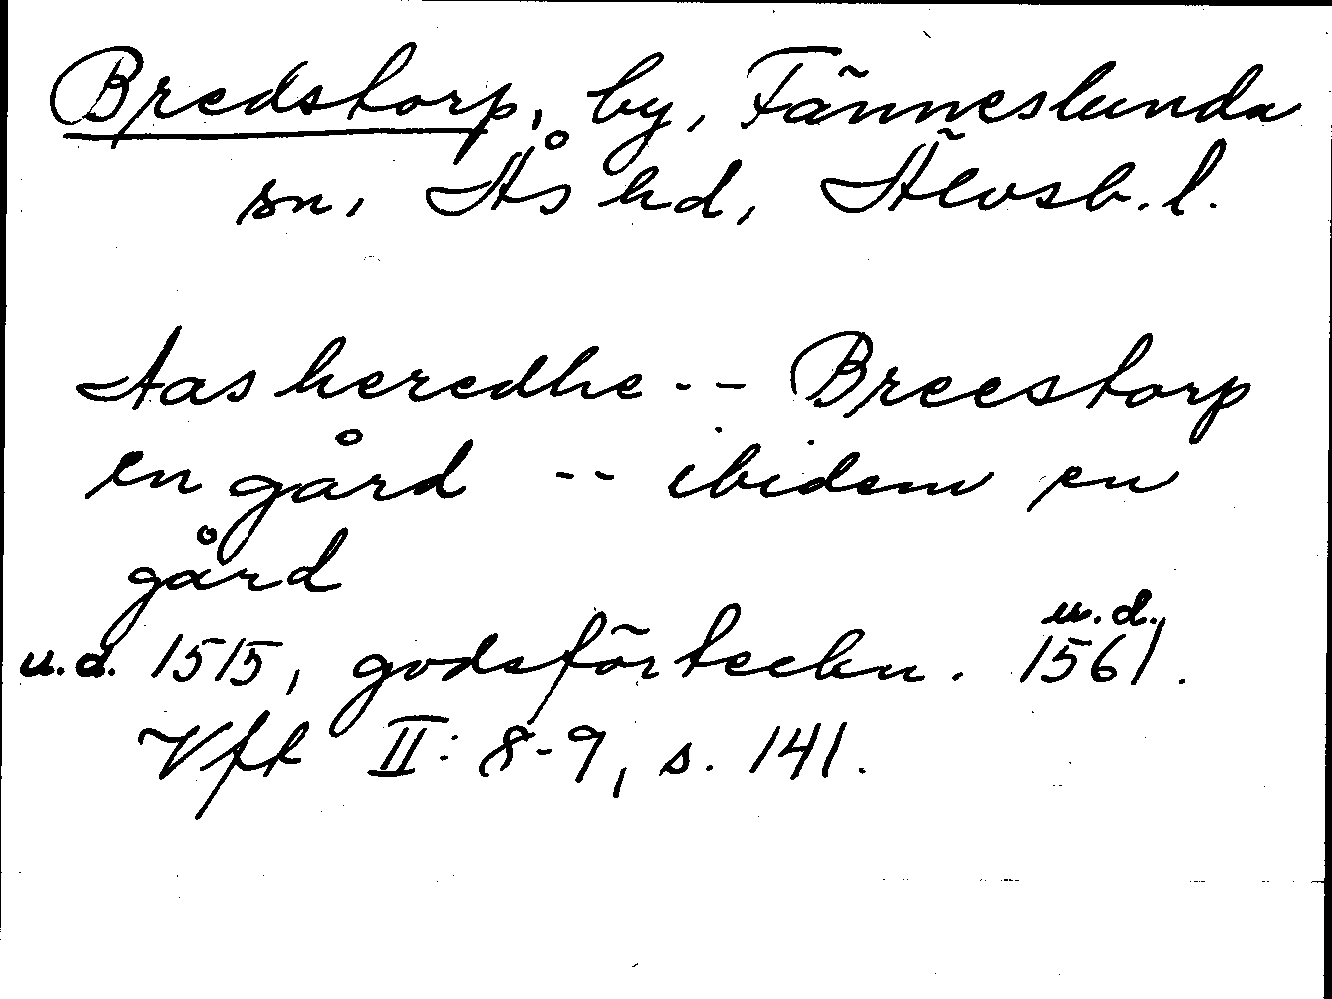 Bredstorp, by, Fänneslunda
sn, Ås hd, Älvsb. l.
Aas heredhe -- Breestorp
en gård -- ibidem en
gård
u.d. 1515, godsförteckn. u.d. 1561.
Vft II: 8-9, s. 141.